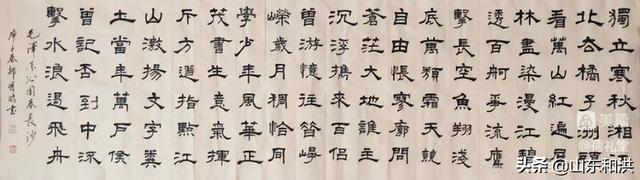 獨立寒秋湘
北去橘子洲頭
看萬山紅遍層
林盡染漫江碧
透百舸爭流鷹
擊長空魚翔淺
底萬類霜天競
自由悵寥廓問
蒼茫大地誰主
沉浮攜來百侶
曾游憶往昔崢
嶸歲月稠恰同
學少年風華正
茂書生意氣揮
斥方遒指點江
山激揚文字糞
土當年萬戶侯
曾記否到中流
擊水浪遏飛舟
毛澤東沁園春長沙
庚子春郭書
美篇
头条 @山东和洪